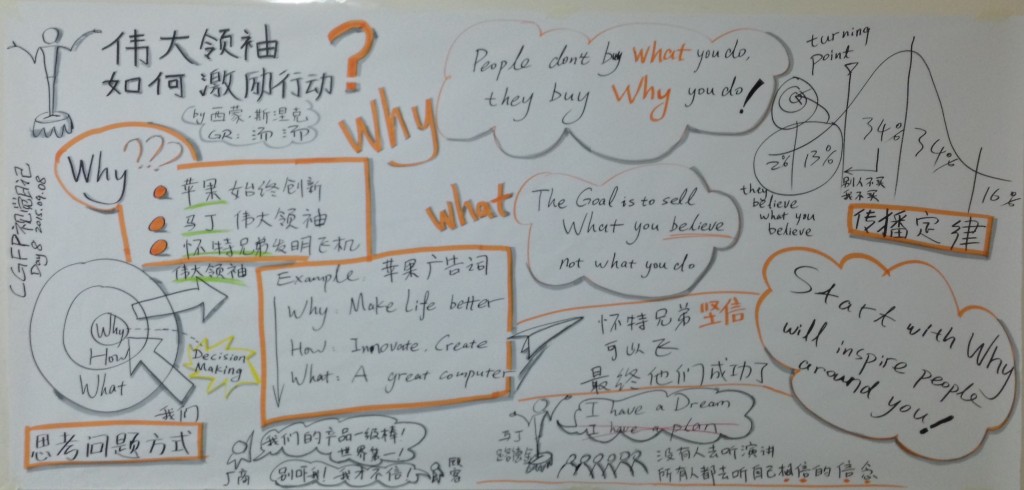 伟大领袖
如何激励行动?
by 西蒙·斯涅克
GR: 沛沛
CGFP视觉日记
Day 8 2015.09.08
Why ???
苹果 始终创新
马丁 伟大领袖
怀特兄弟发明飞机
伟大领袖
Why
How
What
Decision
Making
我们
思考问题方式
Why
People don't buy what you do,
they buy Why you do!
what
The Goal is to sell
What you believe
not what you do
Example. 苹果广告词
Why: Make Life better
How: Innovate. Create
What: A great computer
turning
point
2% 13% 34% 34% 16%
they
believe
what you
believe
别人不买
我不买
传播定律
怀特兄弟 坚信
可以飞
最终他们成功了
Start with Why
will inspire people
around you!
我们的产品一级棒!
世界第一!
商
别吓我! 我才不信!
顾客
马丁
I have a Dream
I have a plan
没有人去听演讲
所有人都去听自己相信的信念